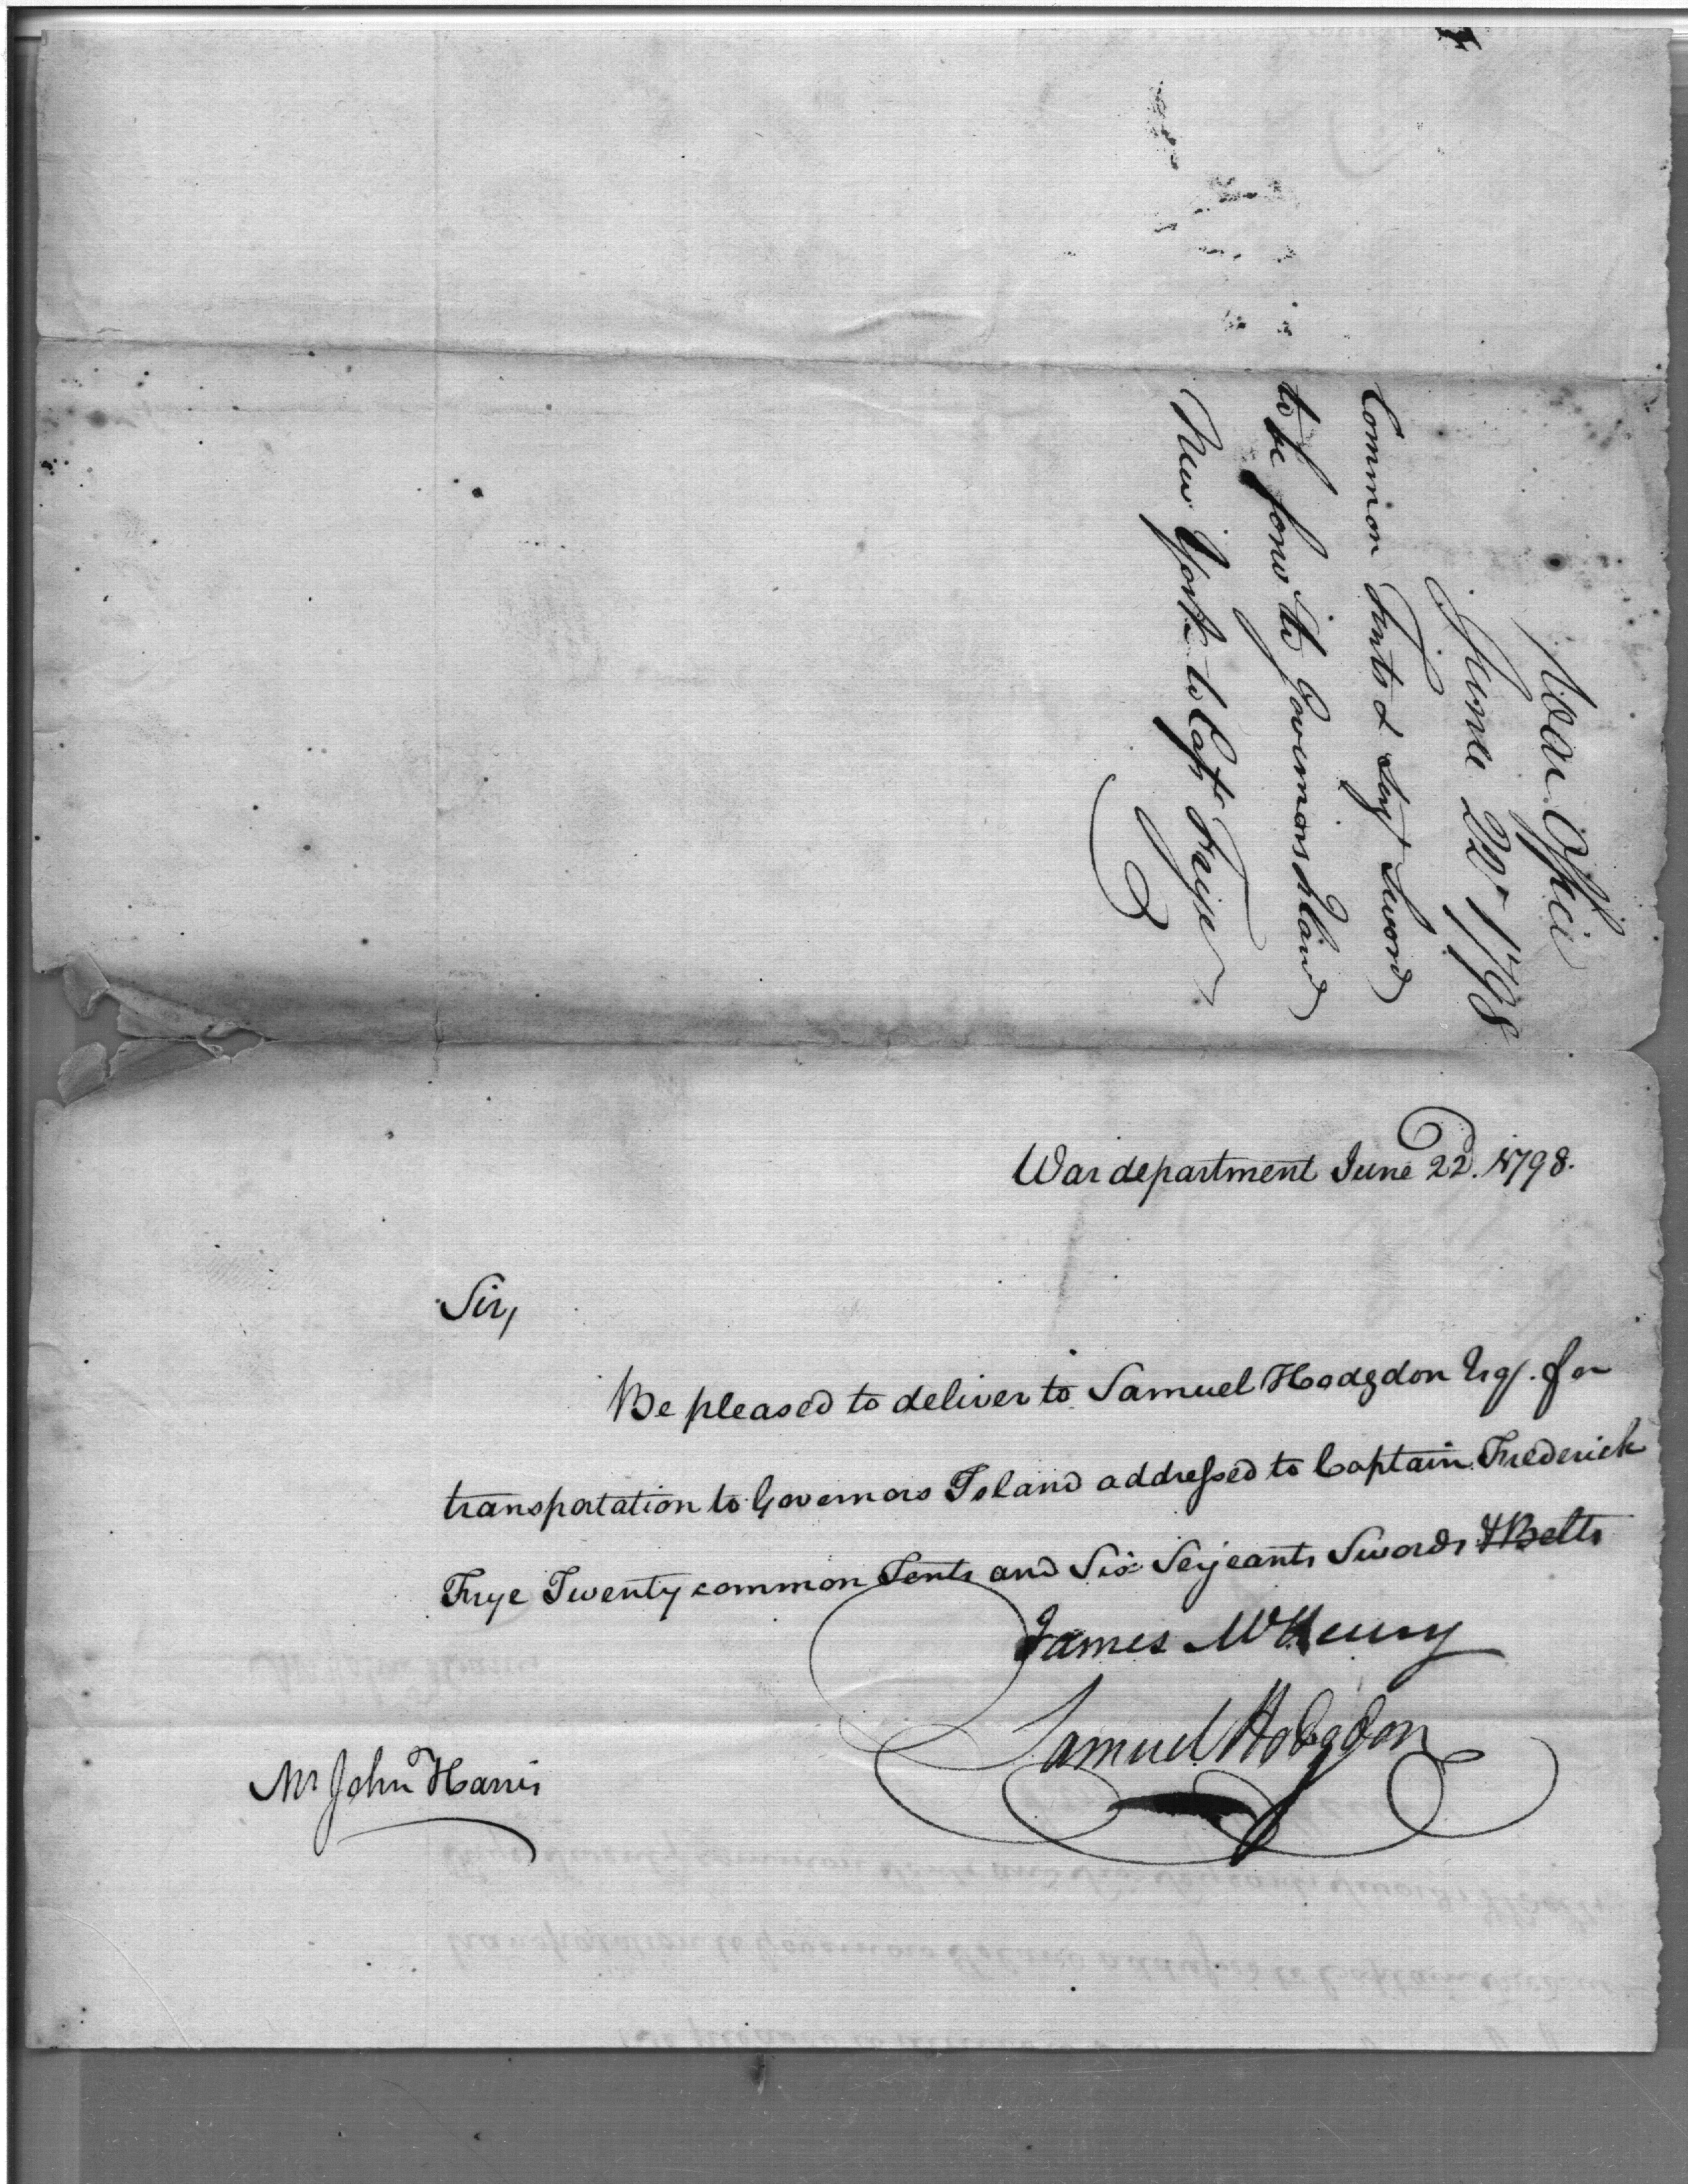 War Office
June 22d 1798
Common Tents & Serjt Swords
to be forwd to Governors Island
New York to Capt Frye
War department June 22d. 1798.
Sir,
Be pleased to deliver to Samuel Hodgdon Esqr. for
transportation to Governors Island addressed to Captain Frederick
Frye Twenty common Tents and Six Serjeants Swords & Belts
James McHenry
Samuel Hodgdon
Mr John Harris